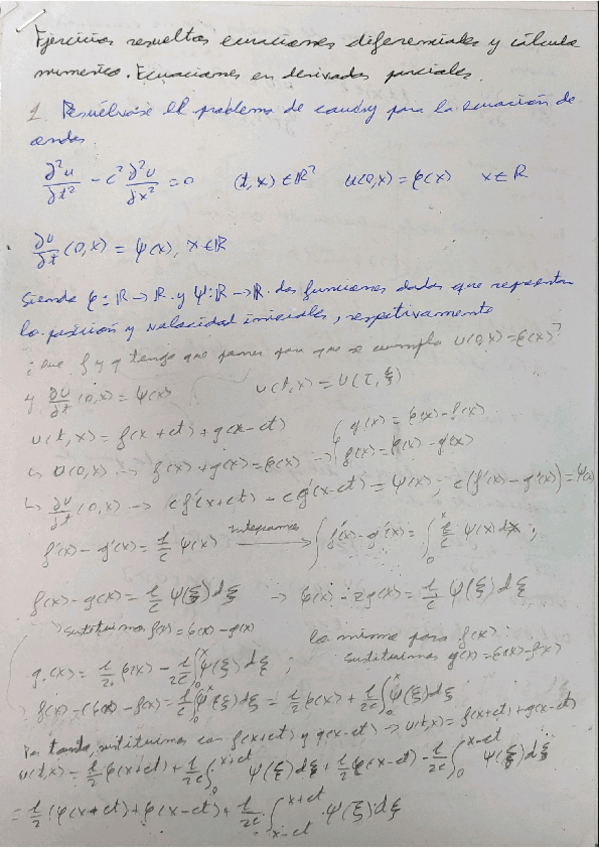 Ejercicios resueltos ecuaciones diferenciales y cálculo
numerico. Ecuaciones en derivadas parciales.
1. Resuélvase el problema de cauchy para la ecuación de
ondas
∂²u/∂t² - c² ∂²u/∂x² = 0 (t,x) ∈ ℝ² u(0,x) = φ(x) x ∈ ℝ
∂u/∂t (0,x) = ψ(x), x ∈ ℝ
siendo φ: ℝ → ℝ y ψ: ℝ → ℝ dos funciones dadas que representan
la posición y velocidad iniciales, respetivamente
¿Que f y g tengo que poner para que se cumpla u(0,x) = φ(x)?
y ∂u/∂t (0,x) = ψ(x) u(t,x) = u(τ,ξ)
u(t,x) = f(x+ct) + g(x-ct) g(x) = φ(x) - f(x)
↳ u(0,x) → f(x) + g(x) = φ(x) → f(x) = φ(x) - g(x)
↳ ∂u/∂t (0,x) → c f'(x+ct) - c g'(x-ct) = ψ(x); c(f'(x) - g'(x)) = ψ(x)
f'(x) - g'(x) = 1/c ψ(x) integramos → ∫ f'(x) - g'(x) = ∫₀ˣ 1/c ψ(x) dx;
f(x) - g(x) = 1/c ψ(ξ) dξ → φ(x) - 2g(x) = 1/c ψ(ξ) dξ
→ sustituimos f(x) = φ(x) - g(x) lo mismo para f(x):
g(x) = 1/2 φ(x) - 1/2c ∫₀ˣ ψ(ξ) dξ ; sustituimos g(x) = φ(x) - f(x)
f(x) - (φ(x) - f(x) = 1/c ∫₀ˣ ψ(ξ) dξ = 1/2 φ(x) + 1/2c ∫₀ˣ ψ(ξ) dξ
Por tanto, sustituimos con f(x+ct) y g(x-ct) → u(t,x) = f(x+ct) + g(x-ct)
u(t,x) = 1/2 φ(x+ct) + 1/2c ∫₀ˣ⁺ᶜᵗ ψ(ξ) dξ + 1/2 φ(x-ct) - 1/2c ∫₀ˣ⁻ᶜᵗ ψ(ξ) dξ
= 1/2 (φ(x+ct) + φ(x-ct) + 1/2c ∫ₓ₋ct ˣ⁺ᶜᵗ ψ(ξ) dξ